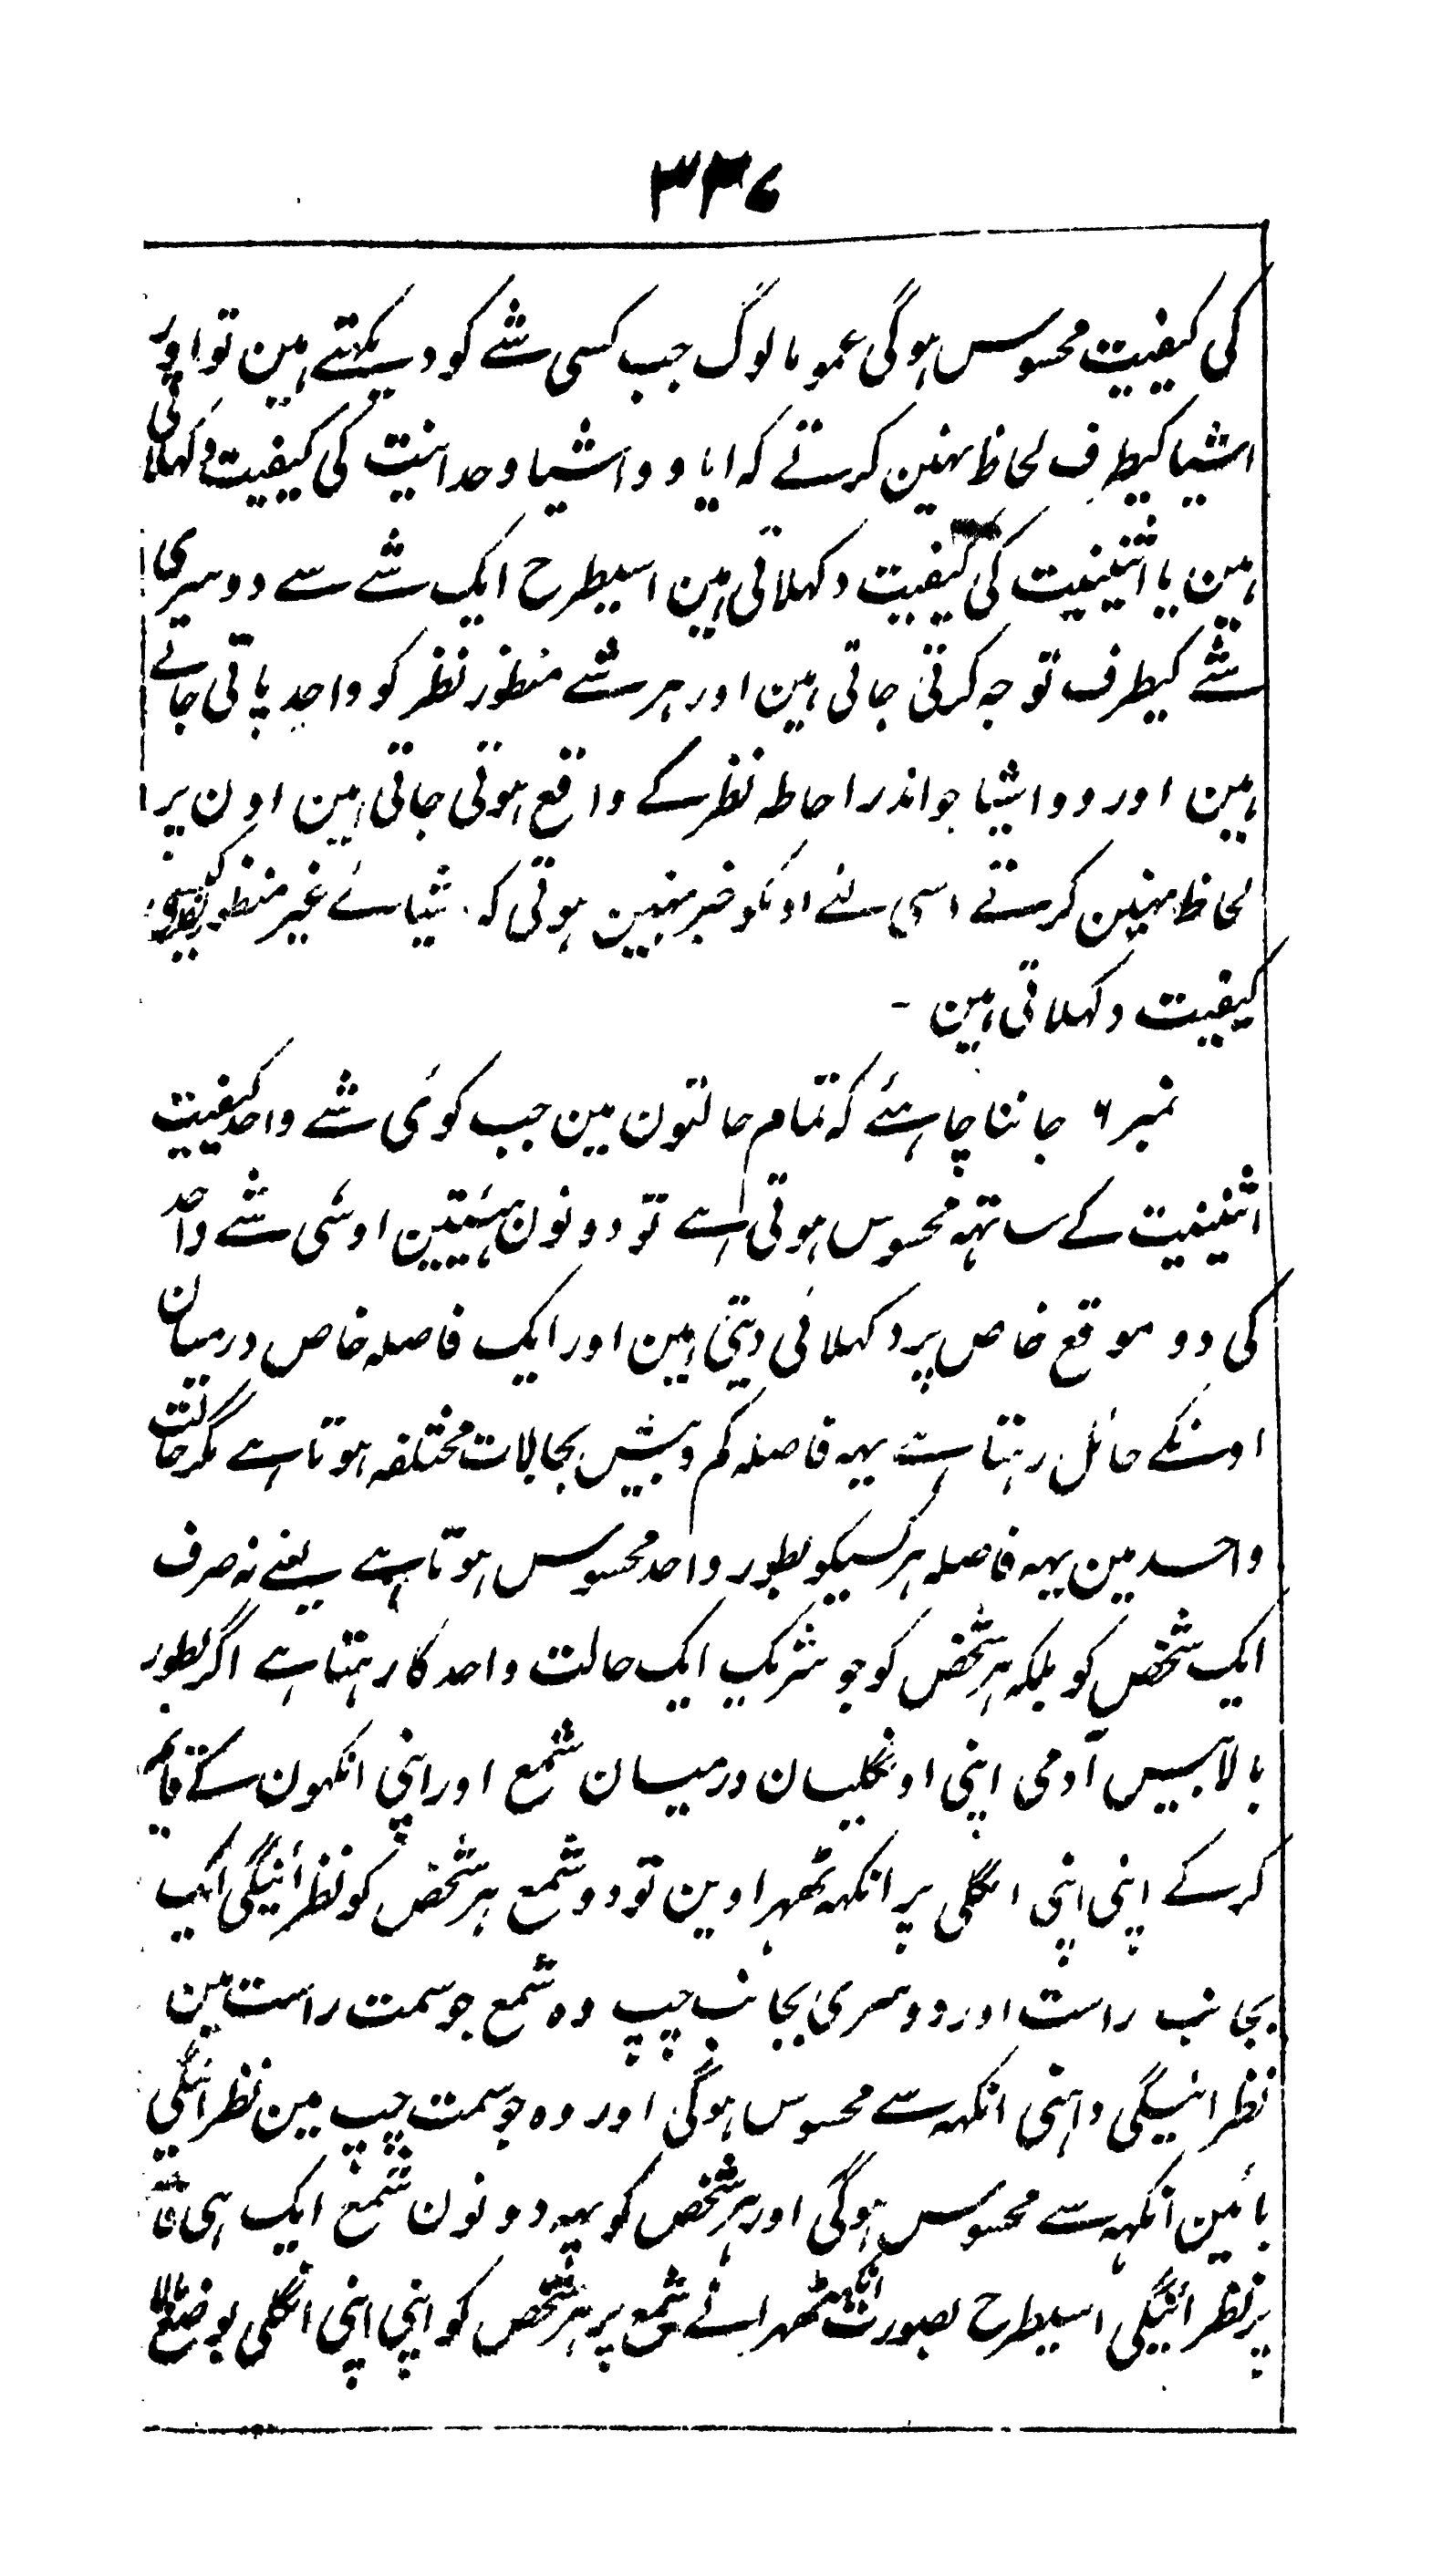 ۳۳۷
کی کیفیت محسوس ہوگی عموما لوگ جب کسی شے کو دیکہتے ہین تو اور
اشیا کیطرف لحاظ نہین کرتے کہ ایا وو اشیا وحدانیت کی کیفیت دکہلاتی
ہین یا اثنینیت کی کیفیت دکہلاتی ہین اسیطرح ایک شے سے دوسری
شے کیطرف توجہ کرتی جاتی ہین اور ہر شے منظور نظر کو واحد پاتی جاتے
ہین اور وو اشیا جو اندر احاطہ نظر کے واقع ہوتی جاتی ہین اون پر
لحاظ نہین کرتے اسی لئے اونکو خبر نہین ہوتی کہ شیائے غیر منظور
کیفیت دکہلاتی ہین -
نمبر ۶ جاننا چاہئے کہ تمام حالتون مین جب کوئی شے واحد کیفیت
اثنینیت کے ساتہہ محسوس ہوتی ہے تو دونون ہیئتین اوسی شے واحد
کی دو موقع خاص پر دکہلائی دیتی ہین اور ایک فاصلہ خاص درمیان
اونکے حائل رہتا ہے یہہ فاصلہ کم و بیش بحالات مختلفہ ہوتا ہے مگر حالت
واحد مین یہہ فاصلہ ہر کسیکو بطور واحد محسوس ہوتا ہے یعنے نہ صرف
ایک شخص کو بلکہ ہر شخص کو جو شریک ایک حالت واحد کا رہتا ہے اگر بطور
بالا بیس آدمی اپنی اونگلیان درمیان شمع اور اپنی انکہون کے قایم
کر کے اپنی اپنی انگلی پر انکہہ ٹھہراوین تو دو شمع ہر شخص کو نظر ائینگی ایک
بجانب راست اور دوسری بجانب چپ وہ شمع جو سمت راست مین
نظر ائیگی داہنی انکہہ سے محسوس ہوگی اور وہ جو سمت چپ مین نظر ائیگی
بائین انکہہ سے محسوس ہوگی اور ہر شخص کو یہہ دونون شمع ایک ہی
پر نظر ائینگی اسیطرح بصورت انکہہ ٹھہرانے شمع پر ہر شخص کو اپنی اپنی انگلی بوضع بالا